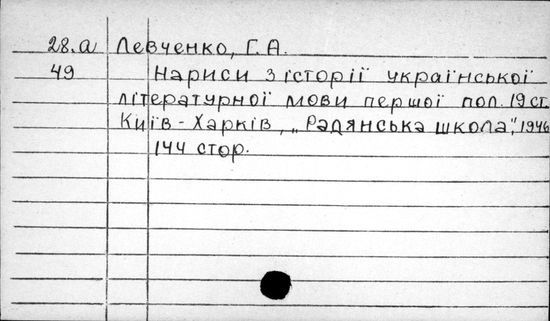 28.а Левченко, Г. А.
49 Нариси з історії української
літературної мови першої пол. 19 ст.
Київ - Харків, „Радянська школа", 1946
144 стор.